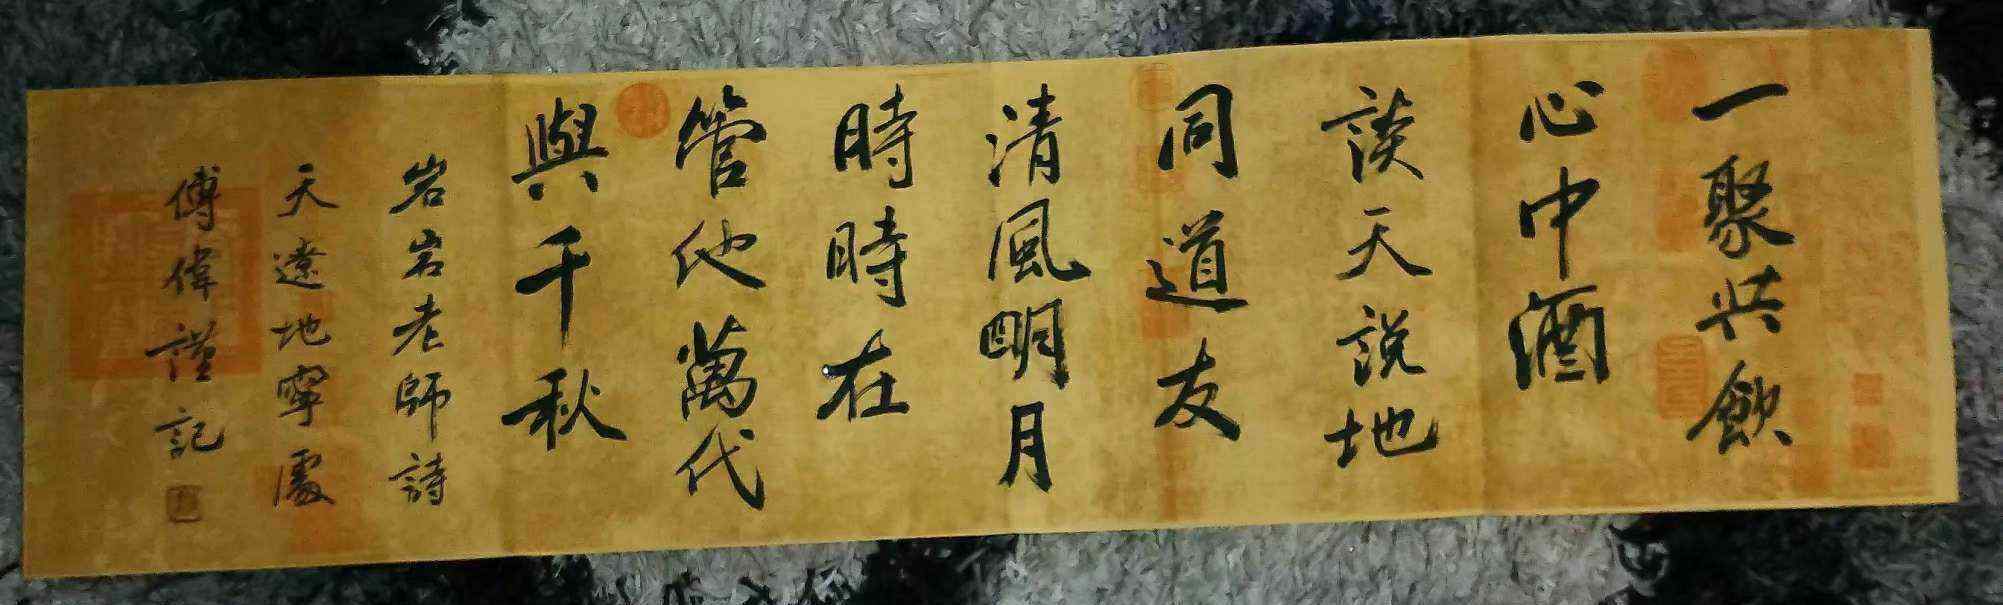 一聚共飲
心中酒
談天説地
同道友
清風明月
時時在
管他萬代
與千秋
岩岩老師詩
天遼地寧處
傅偉謹記